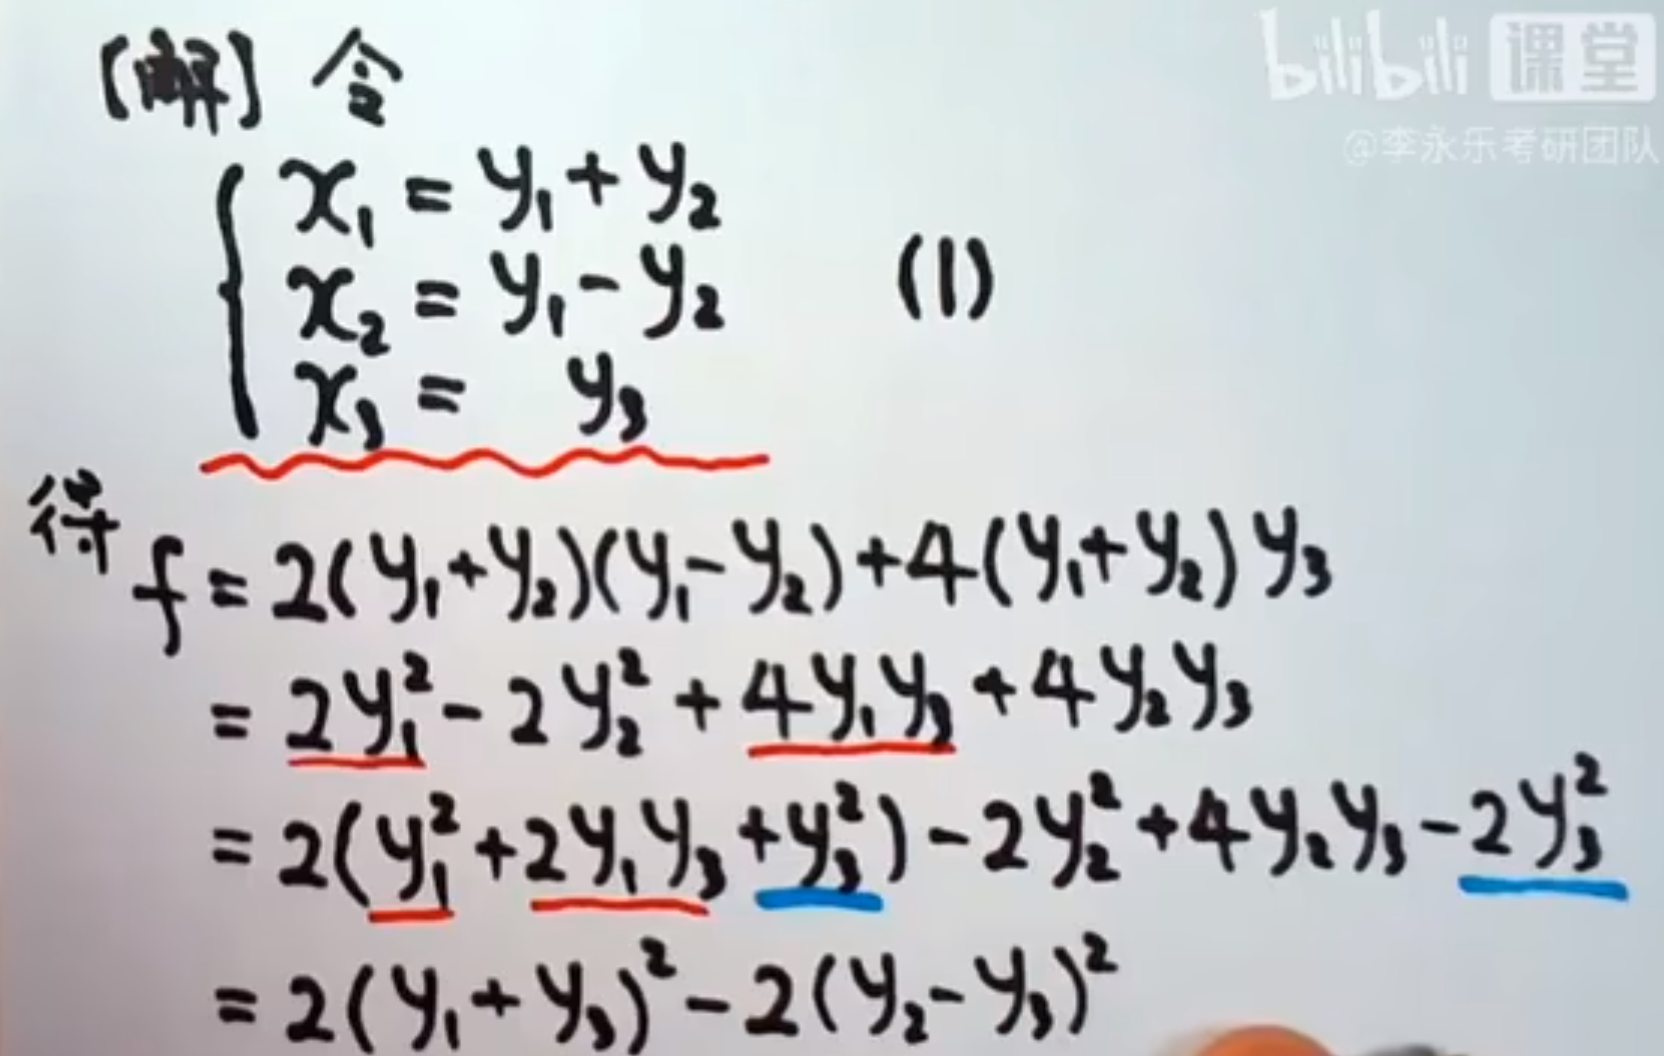 bilibili 课堂
@李永乐考研团队
[解] 令
x₁ = y₁ + y₂
x₂ = y₁ - y₂ (1)
x₃ = y₃
得 f = 2(y₁+y₂)(y₁-y₂)+4(y₁+y₂)y₃
= 2y₁² - 2y₂² + 4y₁y₃ + 4y₂y₃
= 2(y₁² + 2y₁y₃ + y₃²) - 2y₂² + 4y₂y₃ - 2y₃²
= 2(y₁ + y₃)² - 2(y₂ - y₃)²